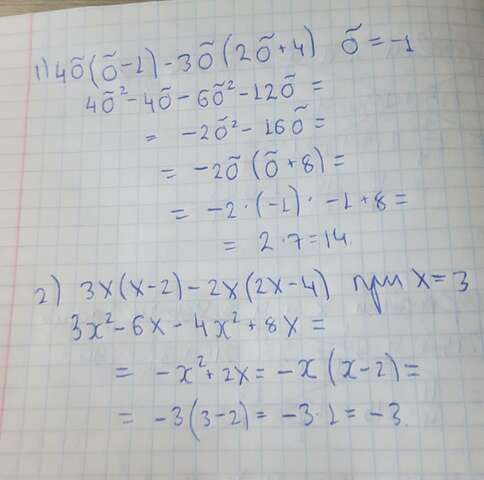 1) 4б(б-1)-3б(2б+4) б=-1
4б²-4б-6б²-12б=
= -2б²-16б=
= -2б(б+8)=
= -2·(-1)·-1+8=
= 2·7=14
2) 3x(x-2)-2x(2x-4) при x=3
3x²-6x-4x²+8x=
= -x²+2x=-x(x-2)=
= -3(3-2)=-3·1=-3.